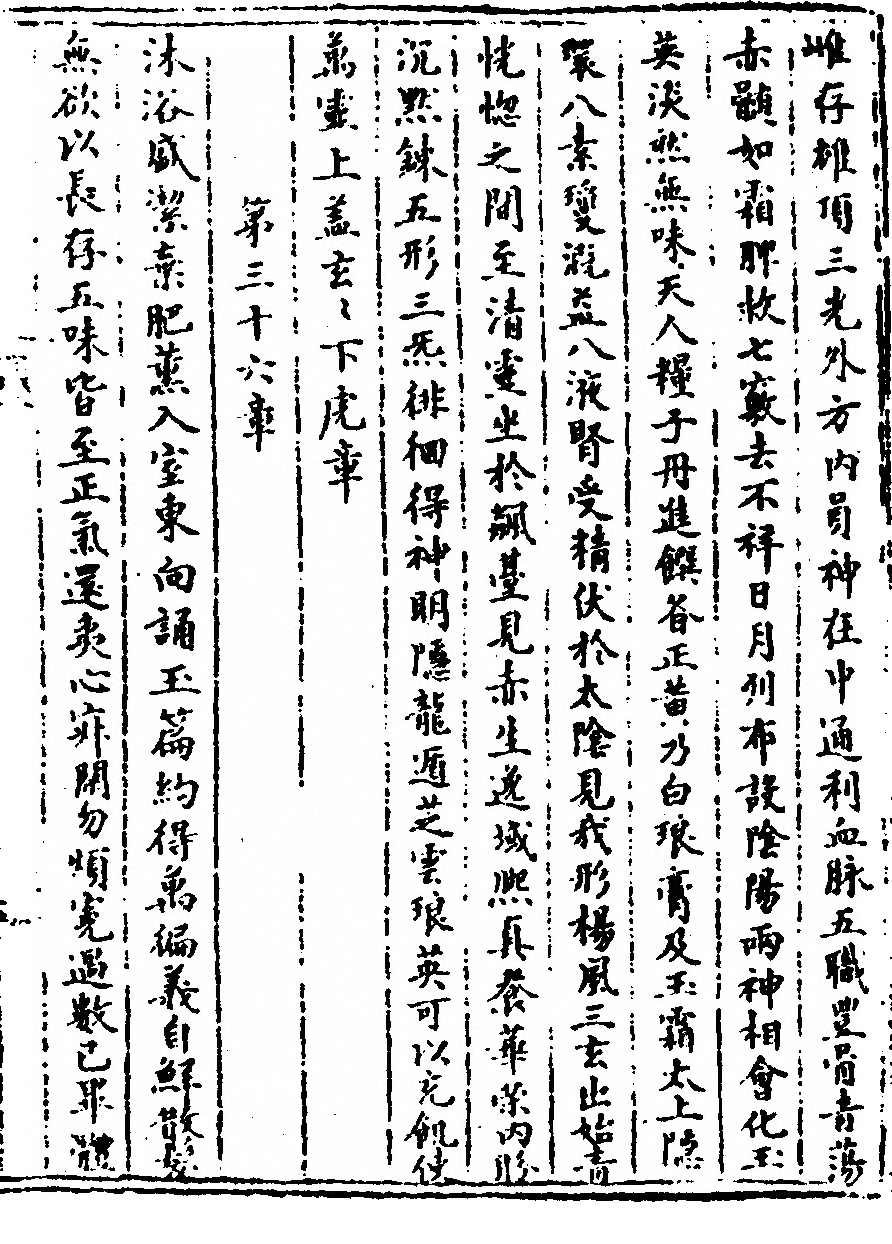 唯存雄頂三光外方內員神在中通利血脉五職豐骨青蕩
赤髄如霜脾救七竅去不祥日月列布設陰陽兩神相會化玉
英淡然無味天人糧子丹進饌肴正黃乃曰琅膏及玉霜太上隱
環八素瓊溉益八液腎受精伏於太陰見我形楊風三玄出始青
恍惚之間至清靈坐於飆臺見赤生逸域熙真養華榮內盼
沉默鍊五形三炁徘徊得神明隱龍遁芝雲琅英可以充飢使
萬靈上蓋玄〻下虎章
第三十六章
沐浴盛潔棄肥薰入室東向誦玉篇約得萬徧義自鮮散髮
無欲以長存五味皆至正氣還夷心寂悶勿煩寃過數已畢體